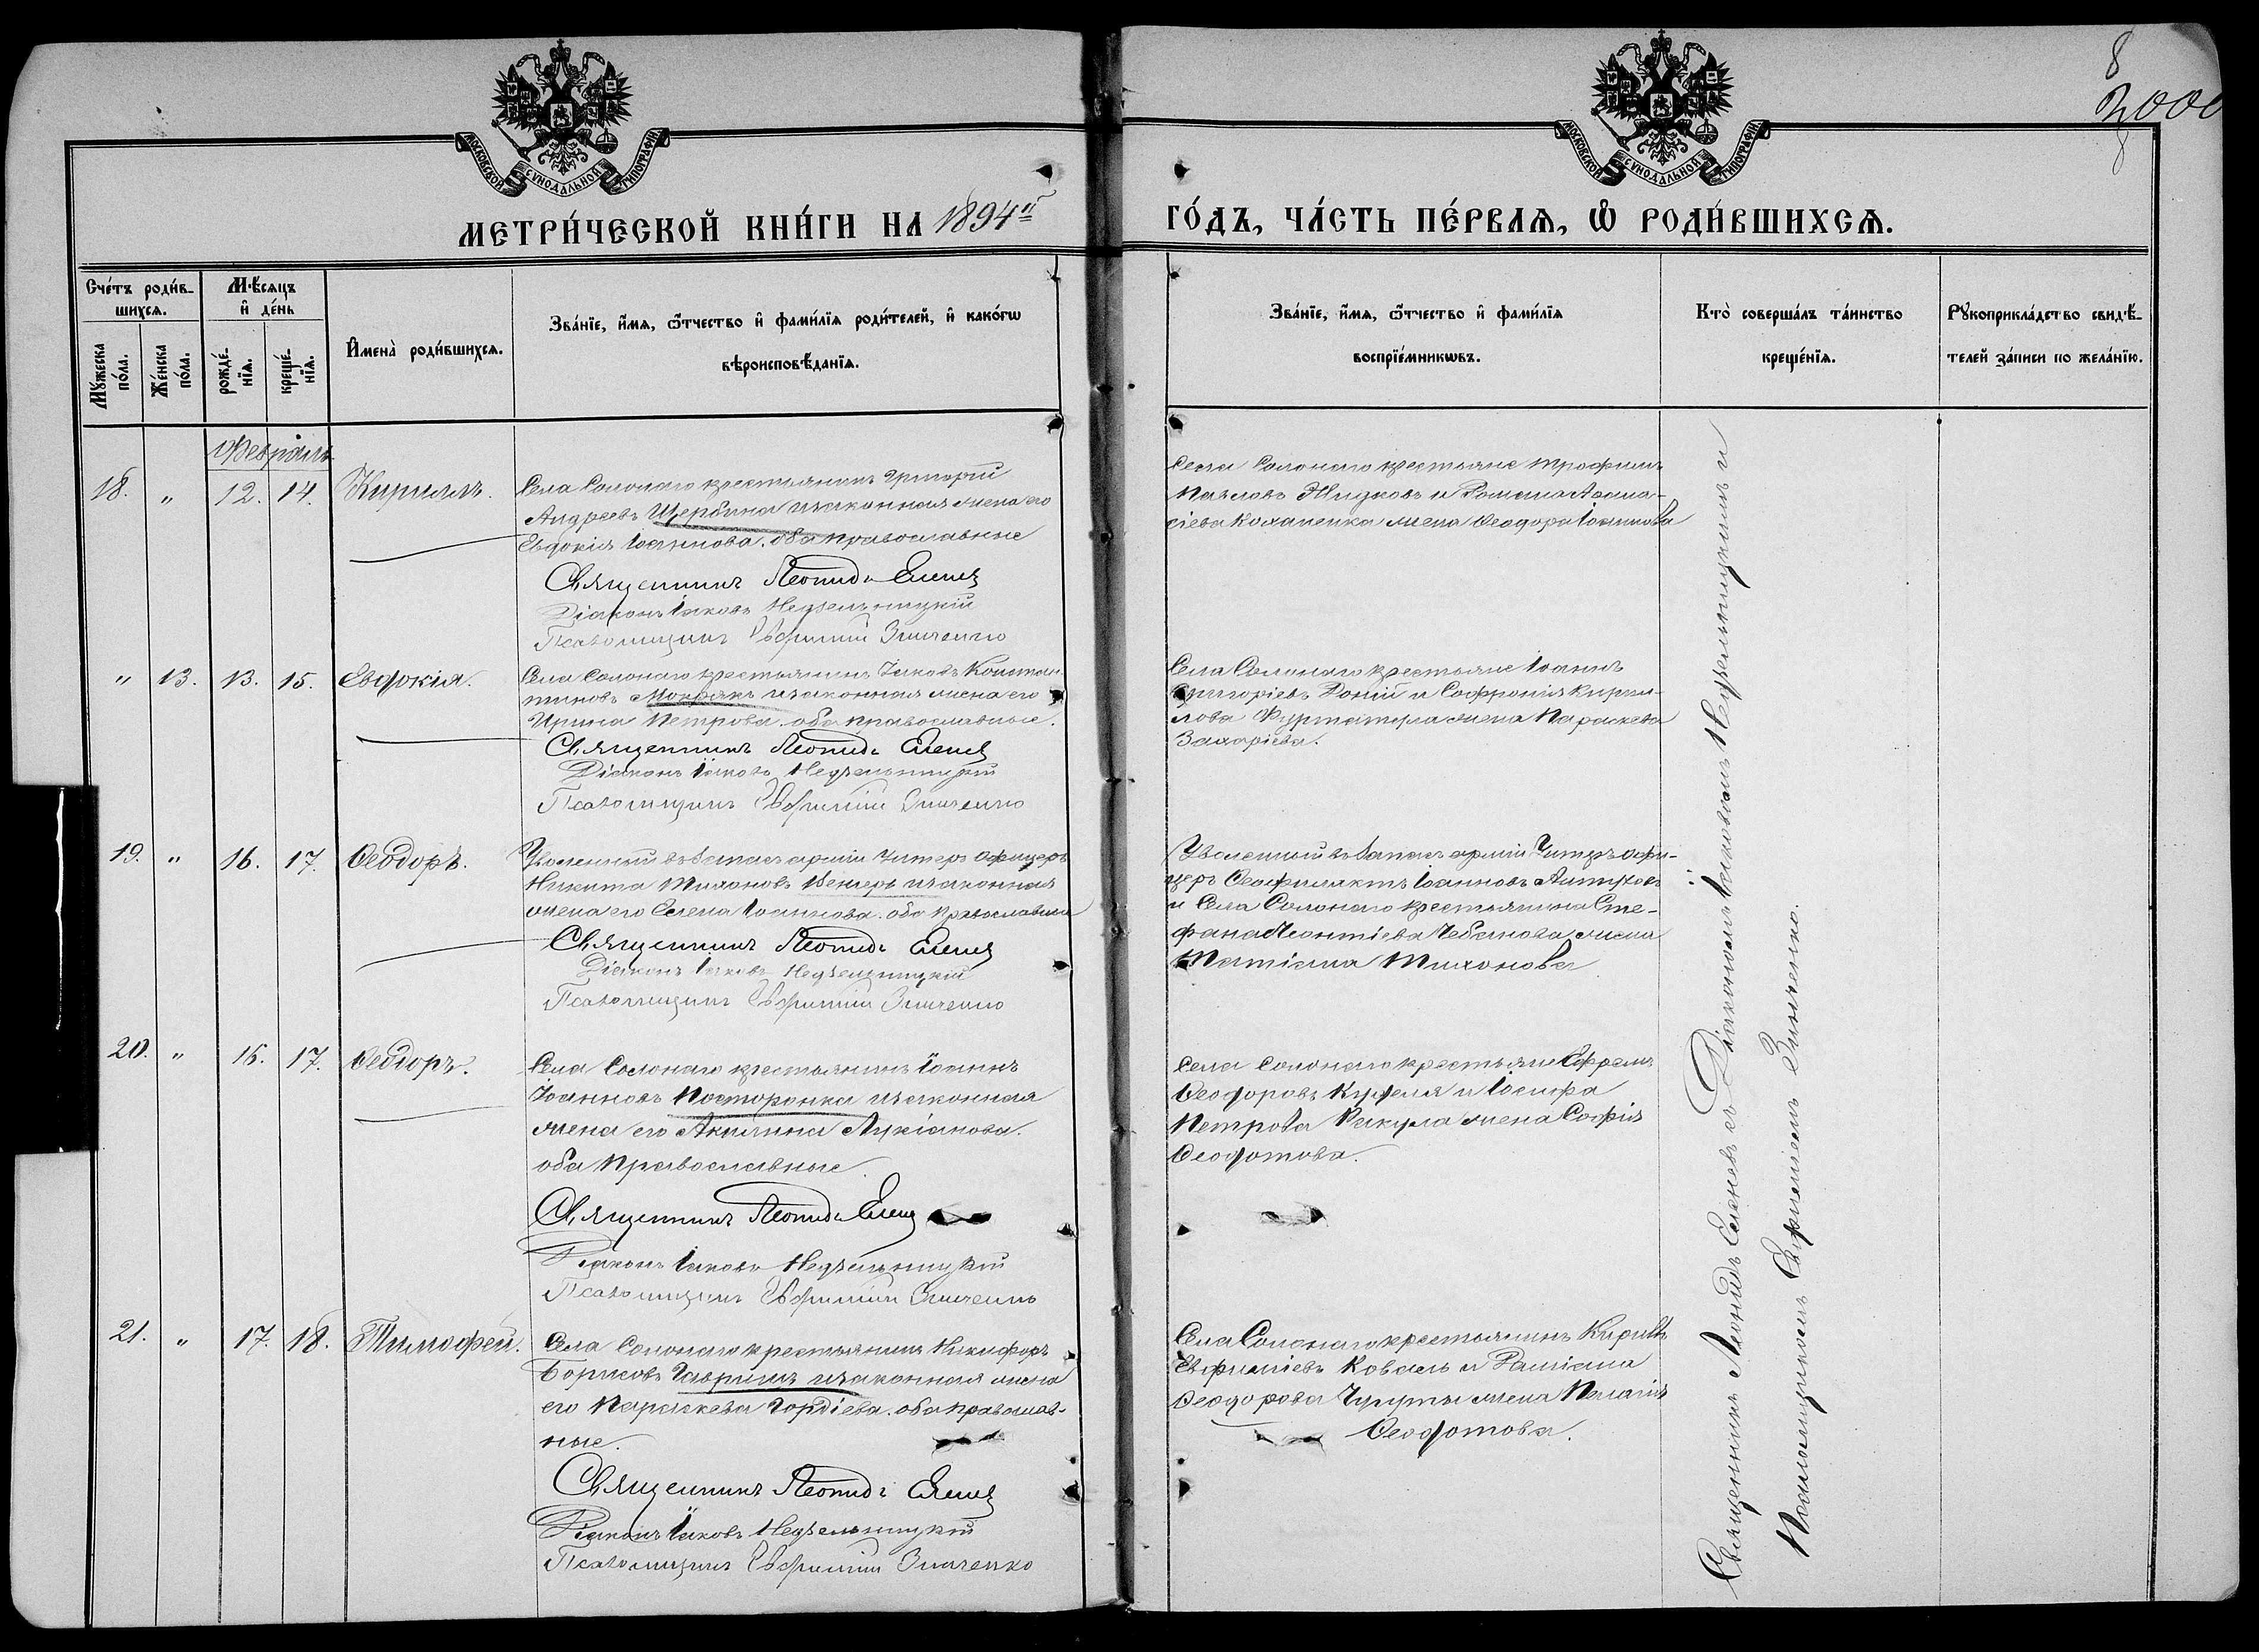 8
2000
МОСКОВСКОЙ СѴНОДАЛЬНОЙ ТИПОГРАФІИ
МОСКОВСКОЙ СѴНОДАЛЬНОЙ ТИПОГРАФІИ
МЕТРИ́ЧЕСКОЙ КНИ́ГИ НА 1894й
ГО́ДЪ, ЧА́СТЬ ПЕ́РВАѦ, Ѽ РОДИ́ВШИХСѦ.
Сче́тъ роди́в-
шихсѧ.
Мꙋ́жеска по́ла.
Же́нска по́ла.
Мѣ́сѧцъ
и҆ де́нь
рожде́-
нїѧ.
креще́-
нїѧ.
И҆мена̀ роди́вшихсѧ.
Зва́нїе, и҆́мѧ, ѻ҆́тчество и҆ фами́лїѧ роди́телей, и҆ како́гѡ
вѣроисповѣ́данїѧ.
Зва́нїе, и҆́мѧ, ѻ҆́тчество и҆ фами́лїѧ
воспрїе́мникѡвъ.
Кто̀ соверша́лъ та́инство
креще́нїѧ.
Рꙋкоприкла́дство свидѣ́-
телей за́писи по жела́нїю.
Февраль
18. " 12. 14. Кириллъ.
Села Солонаго крестьянинъ Григорій
Андреевъ Щербина и законная жена его
Евдокія Іоаннова. оба православные
Священникъ Леонидъ Еленевъ
Діаконъ Іаковъ Недзельницкій
Псаломщикъ Евфимій Зинченко
Села Солонаго крестьяне Трофимъ
Павловъ Жидковъ и Романа Афана-
сіева жена Ѳеодора Іоаннова
" 13. 13. 15. Евдокія.
Села Солонаго крестьянинъ Іаковъ Констан-
тиновъ Мокрякъ и законная жена его
Ирина Петрова. оба православные.
Священникъ Леонидъ Еленевъ
Діаконъ Іаковъ Недзельницкій
Псаломщикъ Евфимій Зинченко
Села Солонаго крестьяне Іоаннъ
Григоріевъ Доній и Софронія Кирил-
лова жена Параскева
Захаріева.
19. " 16. 17. Ѳеодоръ.
Уволенный въ запасъ арміи Унтеръ офицеръ
Никита Тихоновъ Венгеръ и законная
жена его Елена Іоаннова. оба православные
Священникъ Леонидъ Еленевъ
Діаконъ Іаковъ Недзельницкій
Псаломщикъ Евфимій Зинченко
Уволенный въ запасъ арміи Унтеръ офи-
церъ Ѳеофилактъ Іоанновъ
и Села Солонаго крестьянина Сте-
фана Леонтіева Чебанова жена
Татіана Тихонова
20. " 16. 17. Ѳеодоръ.
Села Солонаго крестьянинъ Іоаннъ
Іоанновъ Посторонка и законная
жена его Акилина Лукіанова.
оба православные
Священникъ Леонидъ Еленевъ
Діаконъ Іаковъ Недзельницкій
Псаломщикъ Евфимій Зинченко
Села Солонаго крестьяне Ефремъ
Ѳеодоровъ и Іосифа
Петрова Ракула жена Софія
Ѳеодотова.
21. " 17. 18. Тимофей.
Села Солонаго крестьянинъ Никифоръ
Борисовъ Гавришъ и законная жена
его Параскева Гордіева. оба православ-
ные.
Священникъ Леонидъ Еленевъ
Діаконъ Іаковъ Недзельницкій
Псаломщикъ Евфимій Зинченко
Села Солонаго крестьянинъ Кириллъ
Евфиміевъ Коваль и
Ѳеодорова жена Пелагія
Ѳеодотова.
Священникъ Леонидъ Еленевъ съ Діакономъ Іаковомъ Недзельницкимъ и
Псаломщикомъ Евфиміемъ Зинченко.